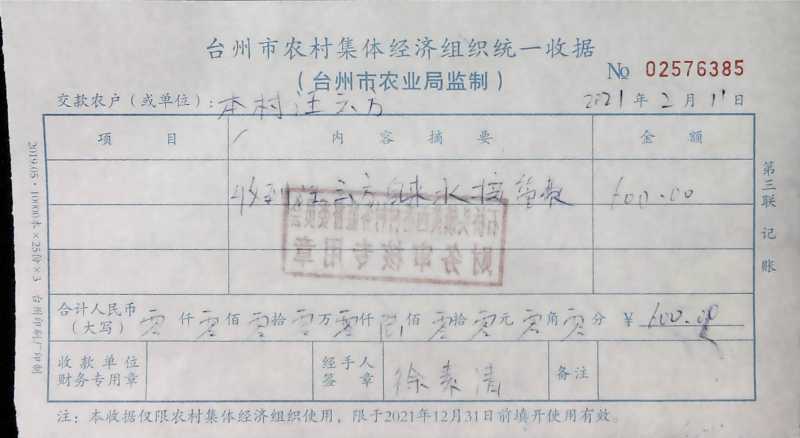 台州市农村集体经济组织统一收据
（台州市农业局监制）
№ 02576385
交款农户（或单位）：本村汪云方 2021年2月11日
项目 内容摘要 金额
收到汪云方自来水接管款 600.00
财务审核专用章
合计人民币（大写） 零仟零佰零拾零万零仟陆佰零拾零元零角零分 ¥ 600.00
收款单位财务专用章 经手人签章 徐素清 备注
注：本收据仅限农村集体经济组织使用，限于2021年12月31日前填开使用有效。
第三联 记账
2019.05·10000本×25份×3 台州印刷厂印制